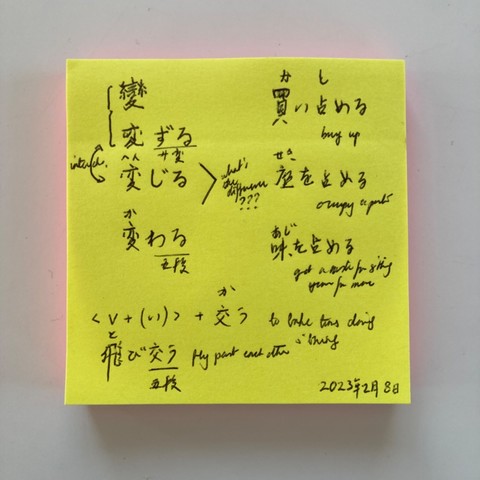 變
変ずる
サ変
へん
変じる
what's
the
difference
???
か
変わる
五段
か し
買い占める
buy up
せき
座を占める
occupy a post
あじ
味を占める
got a taste for sthg
yearn for more
か
< V + (い) > + 交う
と
飛び交う
五段
fly past each other
2023年2月8日